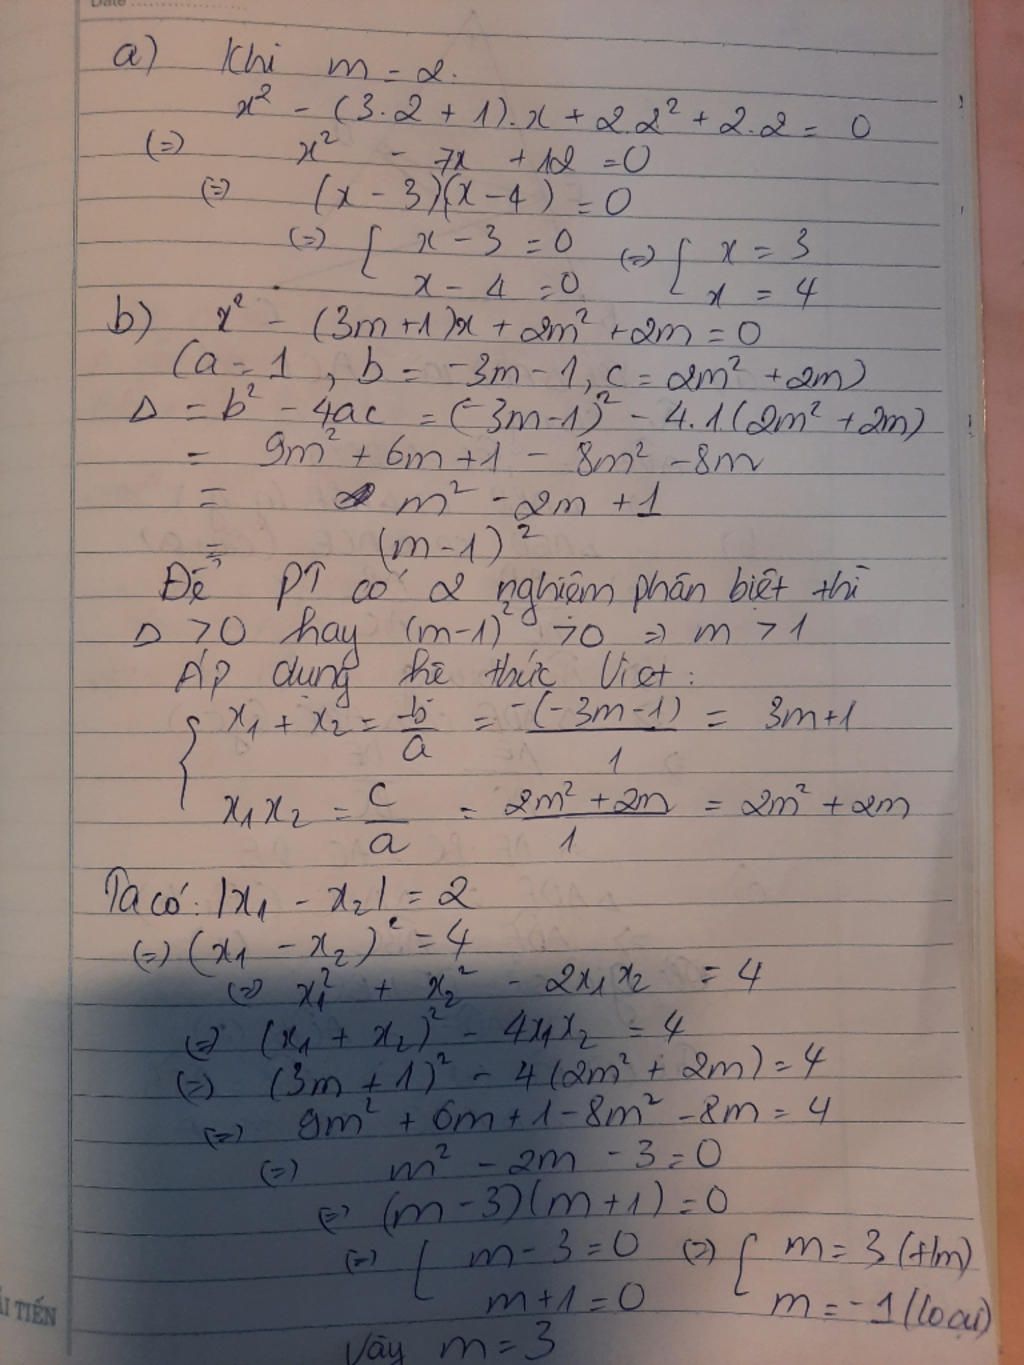 Date
a) Khi m = 2.
x² - (3.2 + 1).x + 2.2² + 2.2 = 0
(=) x² - 7x + 12 = 0
(=) (x - 3)(x - 4) = 0
(=) { x - 3 = 0 (=) { x = 3
x - 4 = 0 x = 4
b) x² - (3m+1)x + 2m² + 2m = 0
(a = 1, b = -3m - 1, c = 2m² + 2m)
Δ = b² - 4ac = (-3m-1)² - 4.1(2m² + 2m)
= 9m² + 6m + 1 - 8m² - 8m
= m² - 2m + 1
= (m-1)²
Để PT có 2 nghiệm phân biệt thì
Δ > 0 hay (m-1)² > 0 => m > 1
Áp dụng hệ thức Viet:
{ x₁ + x₂ = -b/a = -(-3m-1)/1 = 3m+1
x₁x₂ = c/a = (2m² + 2m)/1 = 2m² + 2m
Ta có: |x₁ - x₂| = 2
(=) (x₁ - x₂)² = 4
(=) x₁² + x₂² - 2x₁x₂ = 4
(=) (x₁ + x₂)² - 4x₁x₂ = 4
(=) (3m + 1)² - 4(2m² + 2m) = 4
(=) 9m² + 6m + 1 - 8m² - 8m = 4
(=) m² - 2m - 3 = 0
(=) (m - 3)(m + 1) = 0
(=) { m - 3 = 0 (=) { m = 3 (t/m)
m + 1 = 0 m = -1 (loại)
Vậy m = 3
ẢI TIẾN